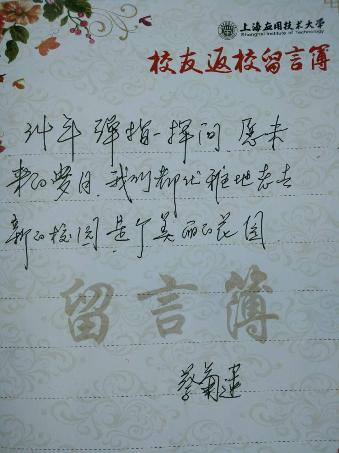 上海应用技术大学
Shanghai Institute of Technology
校友返校留言簿
34年弹指一挥间,愿未
来的岁月,我们都优雅地老去
新的校园是个美丽的花园
留言簿
蔡菊